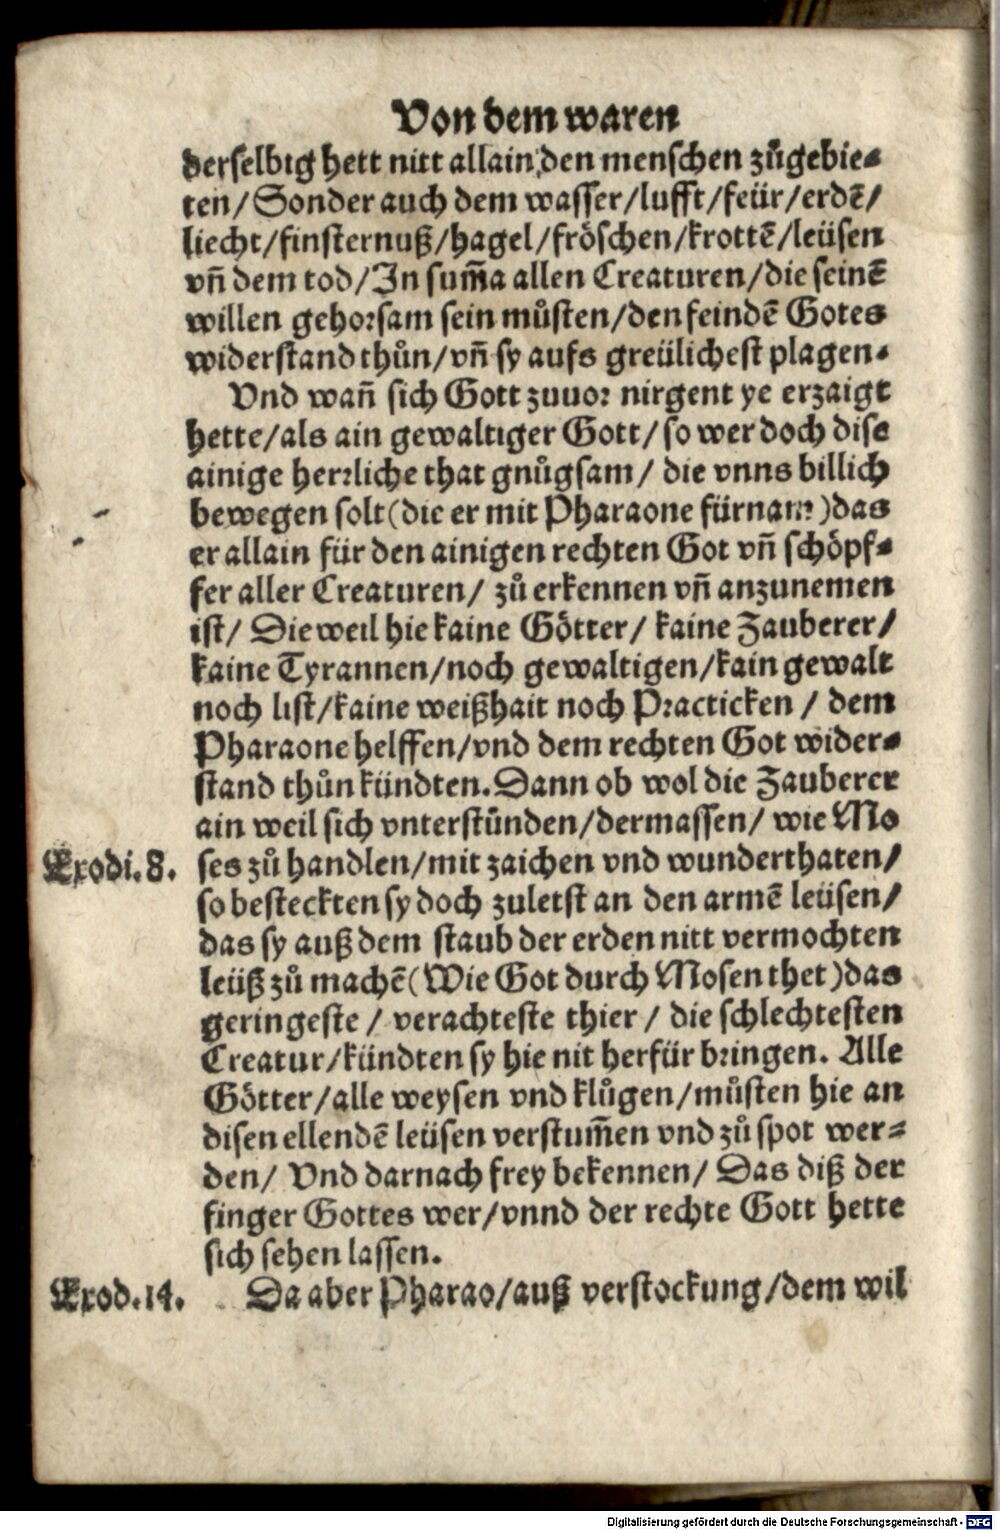 Von dem waren
derselbig hett nitt allain den menschen zůgebie-
ten/Sonder auch dem wasser/lufft/feür/erdē/
liecht/finsternuß/hagel/fröschen/krottē/leüsen
vñ dem tod/In sum̄a allen Creaturen/die seinē
willen gehorsam sein můsten/den feindē Gotes
widerstand thůn/vñ sy aufs greülichest plagen.
Vnd wañ sich Gott zuuor nirgent ye erzaigt
hette/als ain gewaltiger Gott/so wer doch dise
ainige herrliche that gnůgsam/ die vnns billich
bewegen solt(die er mit Pharaone fürnam)das
er allain für den ainigen rechten Got vñ schöpf-
fer aller Creaturen/ zů erkennen vñ anzunemen
ist/ Die weil hie kaine Götter/ kaine Zauberer/
kaine Tyrannen/noch gewaltigen/kain gewalt
noch list/kaine weißhait noch Practicken / dem
Pharaone helffen/vnd dem rechten Got wider-
stand thůn kündten.Dann ob wol die Zauberer
ain weil sich vnterstůnden/dermassen/ wie Mo
Exodi.8. ses zů handlen/mit zaichen vnd wunderthaten/
so besteckten sy doch zuletst an den armē leüsen/
das sy auß dem staub der erden nitt vermochten
leüß zů machē(Wie Got durch Mosen thet)das
geringeste / verachteste thier / die schlechtesten
Creatur/kündten sy hie nit herfür bringen. Alle
Götter/alle weysen vnd klůgen/můsten hie an
disen ellendē leüsen verstum̄en vnd zů spot wer-
den/ Vnd darnach frey bekennen/ Das diß der
finger Gottes wer/vnnd der rechte Gott hette
sich sehen lassen.
Exod.14. Da aber Pharao/auß verstockung/dem wil
Digitalisierung gefördert durch die Deutsche Forschungsgemeinschaft - DFG